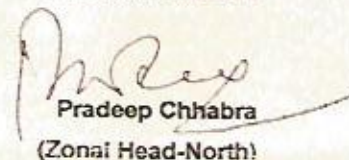 Pradeep Chhabra
(Zonal Head-North)